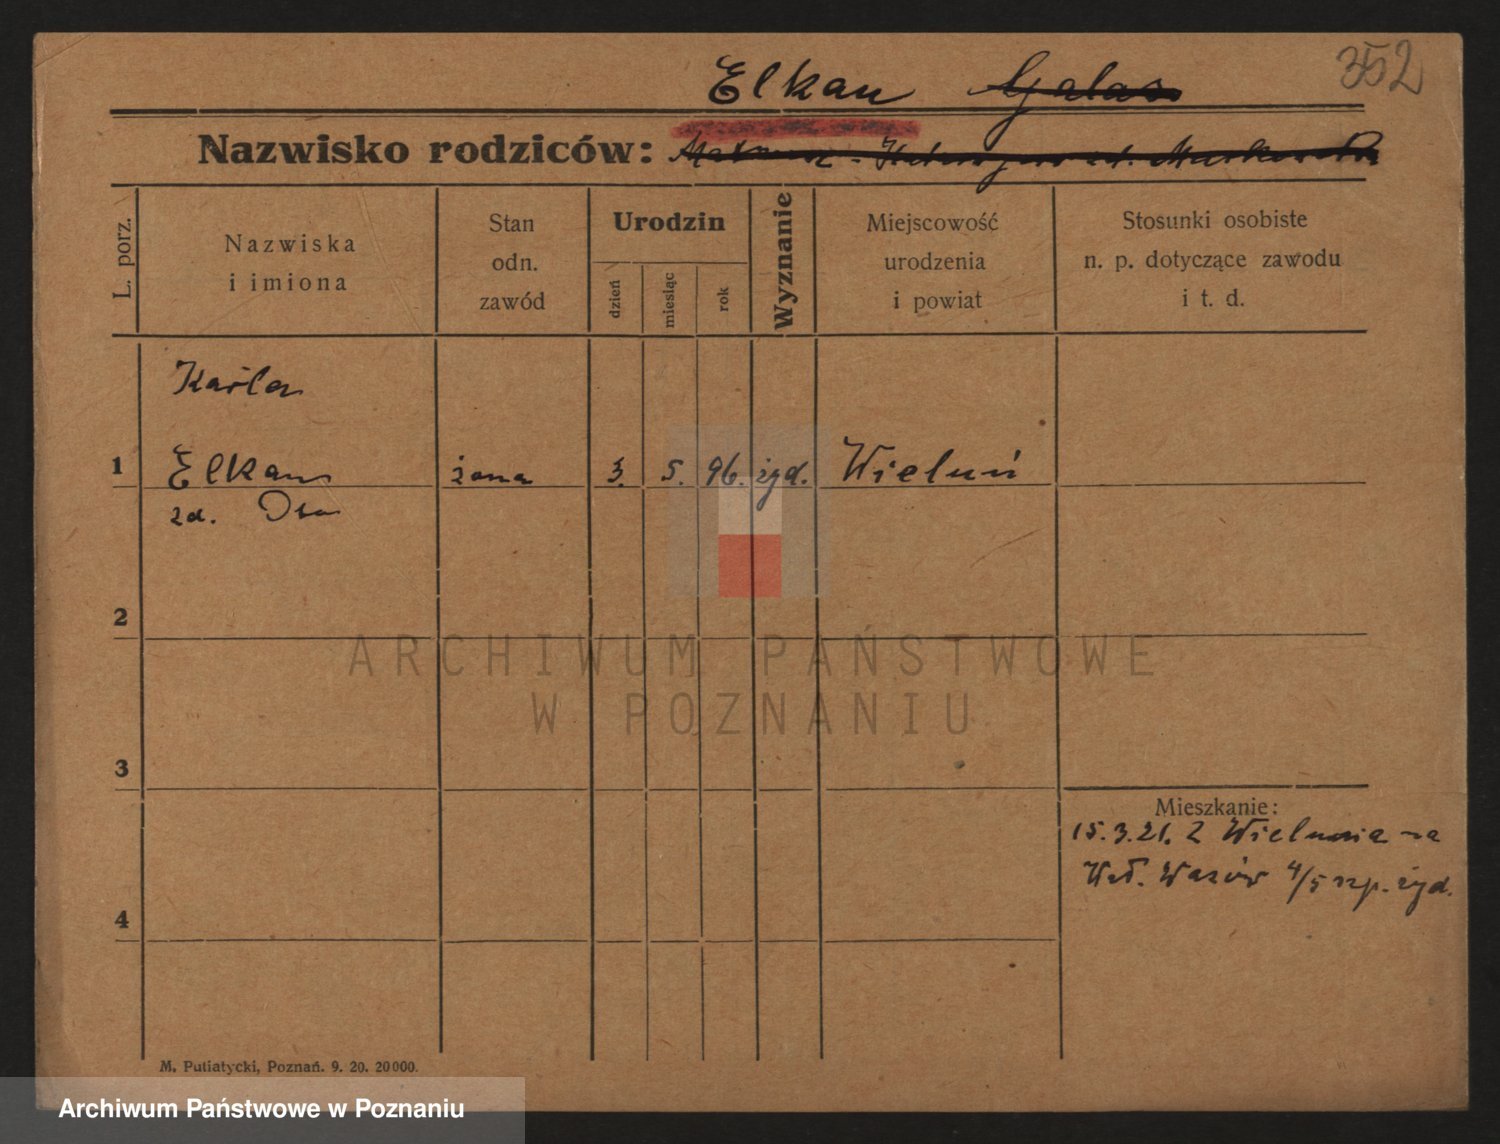 352
Elkan Galas
Nazwisko rodziców:
L. porz.
Nazwiska
i imiona
Stan
odn.
zawód
Urodzin
dzień
miesiąc
rok
Wyznanie
Miejscowość
urodzenia
i powiat
Stosunki osobiste
n. p. dotyczące zawodu
i t. d.
Karla
1 Elkan żona 3. 5. 96. żyd. Wieluń
zd.
2
3
4
Mieszkanie:
15.3.21. Z Wielunia na
Wał. Wazów 4/5 szp. żyd.
M. Putiatycki, Poznań. 9. 20. 20000.
ARCHIWUM PAŃSTWOWE
W POZNANIU
Archiwum Państwowe w Poznaniu